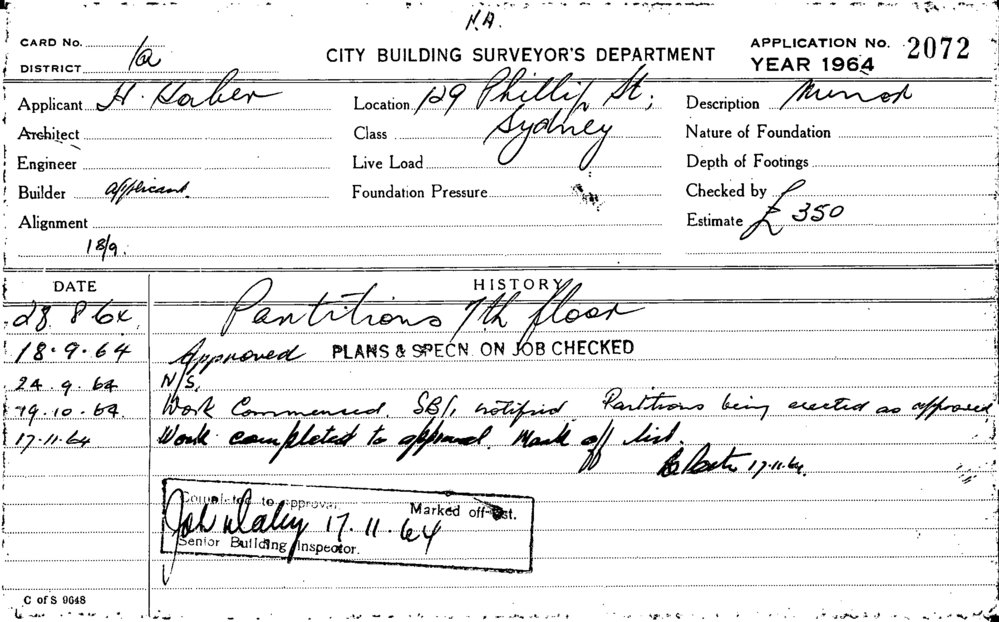 N.A.
CARD No.
DISTRICT 1a
CITY BUILDING SURVEYOR'S DEPARTMENT
APPLICATION No. 2072
YEAR 1964
Applicant H. Haber
Location 129 Phillip St,
Sydney
Description Minor
Architect
Class
Nature of Foundation
Engineer
Live Load
Depth of Footings
Builder applicant.
Foundation Pressure
Checked by
Alignment
Estimate £ 350
18/9.
DATE HISTORY
28 8 64. Partitions 7th floor
18.9.64 Approved PLANS & SPECN. ON JOB CHECKED
24.9.64 N/S.
19.10.64. Work Commenced, SB/, notified Partitions being erected as approved
17.11.64 Work completed to approval. Mark off list.
17.11.64.
Completed to approval.
Marked off list.
17.11.64
Senior Building Inspector.
C of S 9648